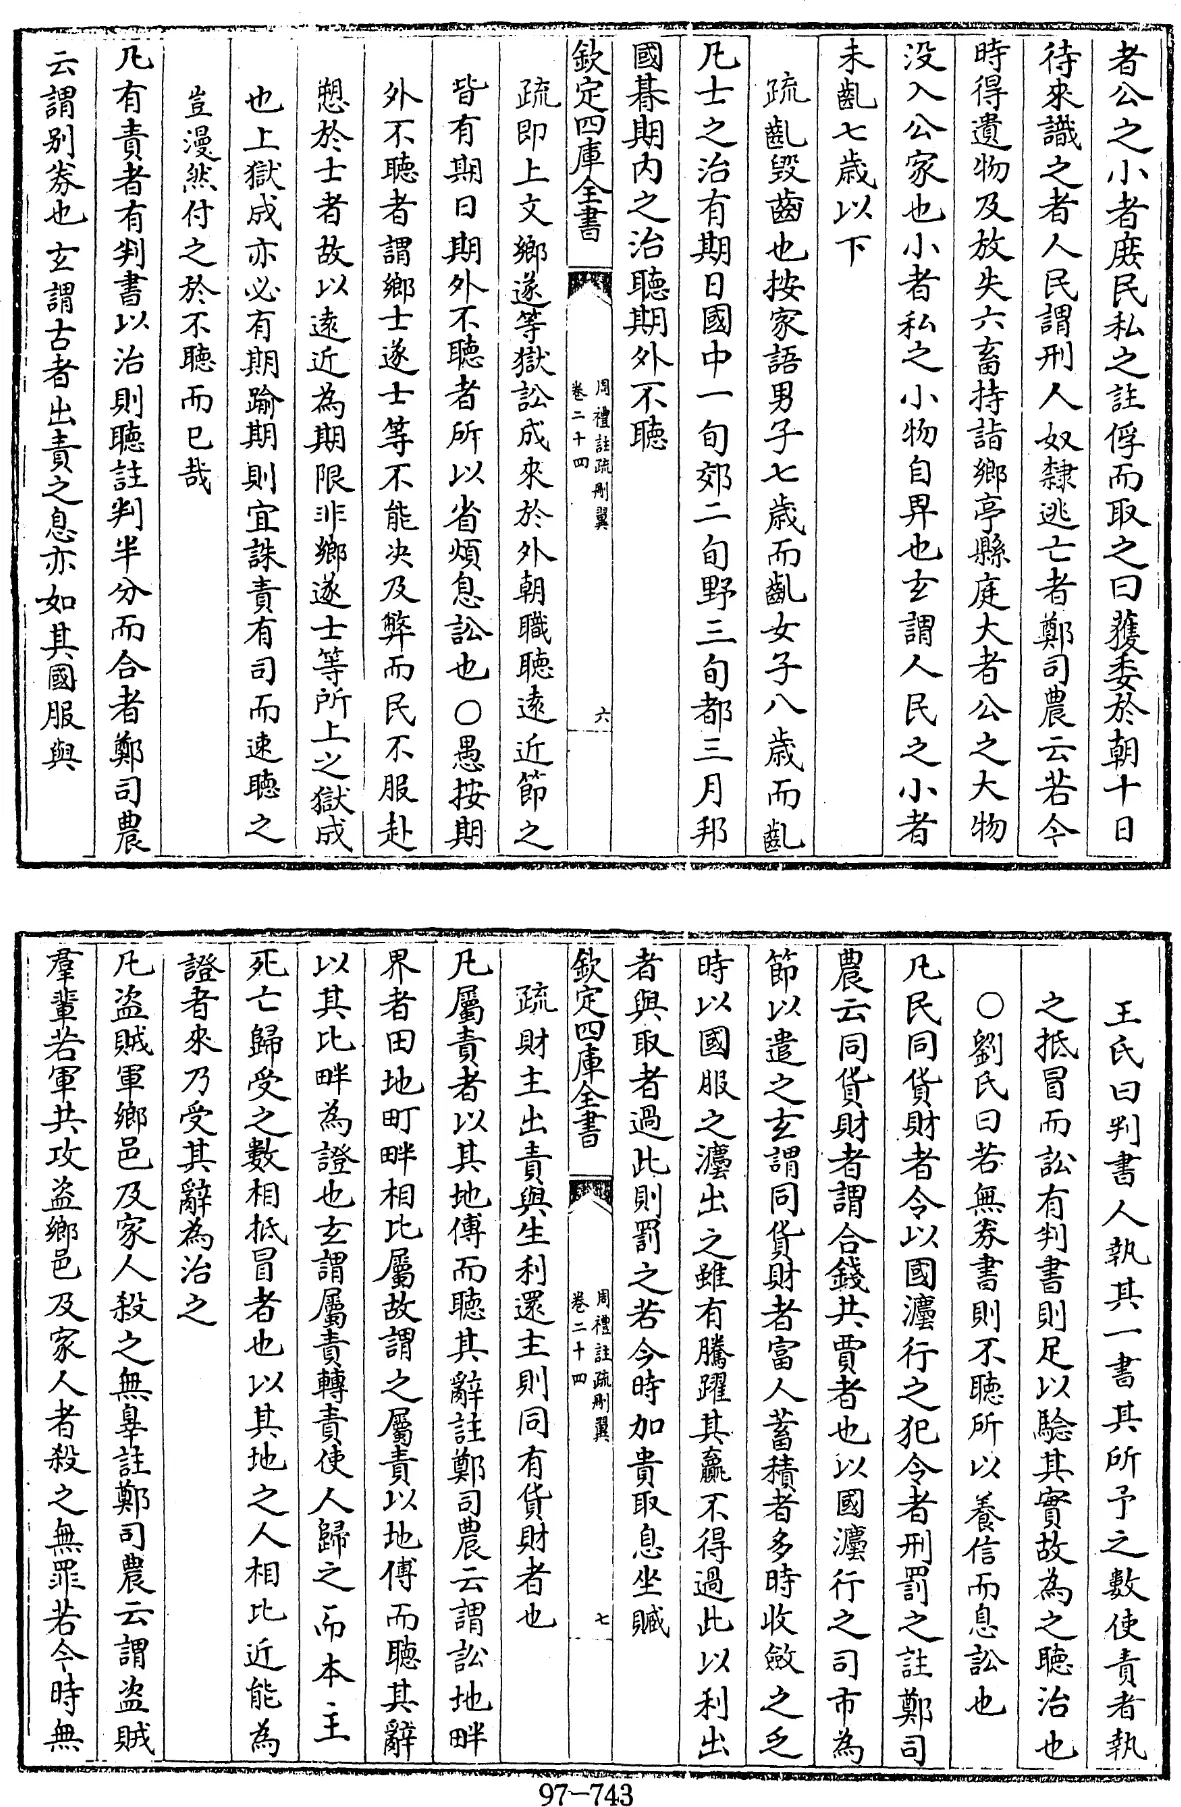 者公之小者庻民私之註俘而取之曰獲委於朝十日
待來識之者人民謂刑人奴隸逃亡者鄭司農云若今
時得遺物及放失六畜持詣鄉亭縣庭大者公之大物
没入公家也小者私之小物自畀也玄謂人民之小者
未齓七歳以下
疏齓毀齒也按家語男子七歳而齓女子八歳而齓
凡士之治有期日國中一旬郊二旬野三旬都三月邦
國朞期内之治聽期外不聽
欽定四庫全書
周禮註疏刪翼
卷二十四
六
疏即上文鄉遂等獄訟成來於外朝職聽遠近節之
皆有期日期外不聽者所以省煩息訟也○愚按期
外不聽者謂鄉士遂士等不能决及弊而民不服赴
愬於士者故以遠近為期限非鄉遂士等所上之獄成
也上獄成亦必有期踰期則宜誅責有司而速聽之
豈漫然付之於不聽而已哉
凡有責者有判書以治則聽註判半分而合者鄭司農
云謂别券也玄謂古者出責之息亦如其國服與
王氏曰判書人執其一書其所予之數使責者執
之抵冒而訟有判書則足以驗其實故為之聽治也
○劉氏曰若無券書則不聽所以養信而息訟也
凡民同貨財者令以國灋行之犯令者刑罰之註鄭司
農云同貨財者謂合錢共賈者也以國灋行之司市為
節以遣之玄謂同貨財者富人蓄積者多時收斂之乏
時以國服之灋出之雖有騰躍其贏不得過此以利出
者與取者過此則罰之若今時加貴取息坐贓
欽定四庫全書
周禮註疏刪翼
卷二十四
七
疏財主出責與生利還主則同有貨財者也
凡屬責者以其地傅而聽其辭註鄭司農云謂訟地畔
界者田地町畔相比屬故謂之屬責以地傅而聽其辭
以其比畔為證也玄謂屬責轉責使人歸之而本主
死亡歸受之數相抵冒者也以其地之人相比近能為
證者來乃受其辭為治之
凡盗賊軍鄉邑及家人殺之無辠註鄭司農云謂盗賊
羣輩若軍共攻盗鄉邑及家人者殺之無罪若今時無
97-743